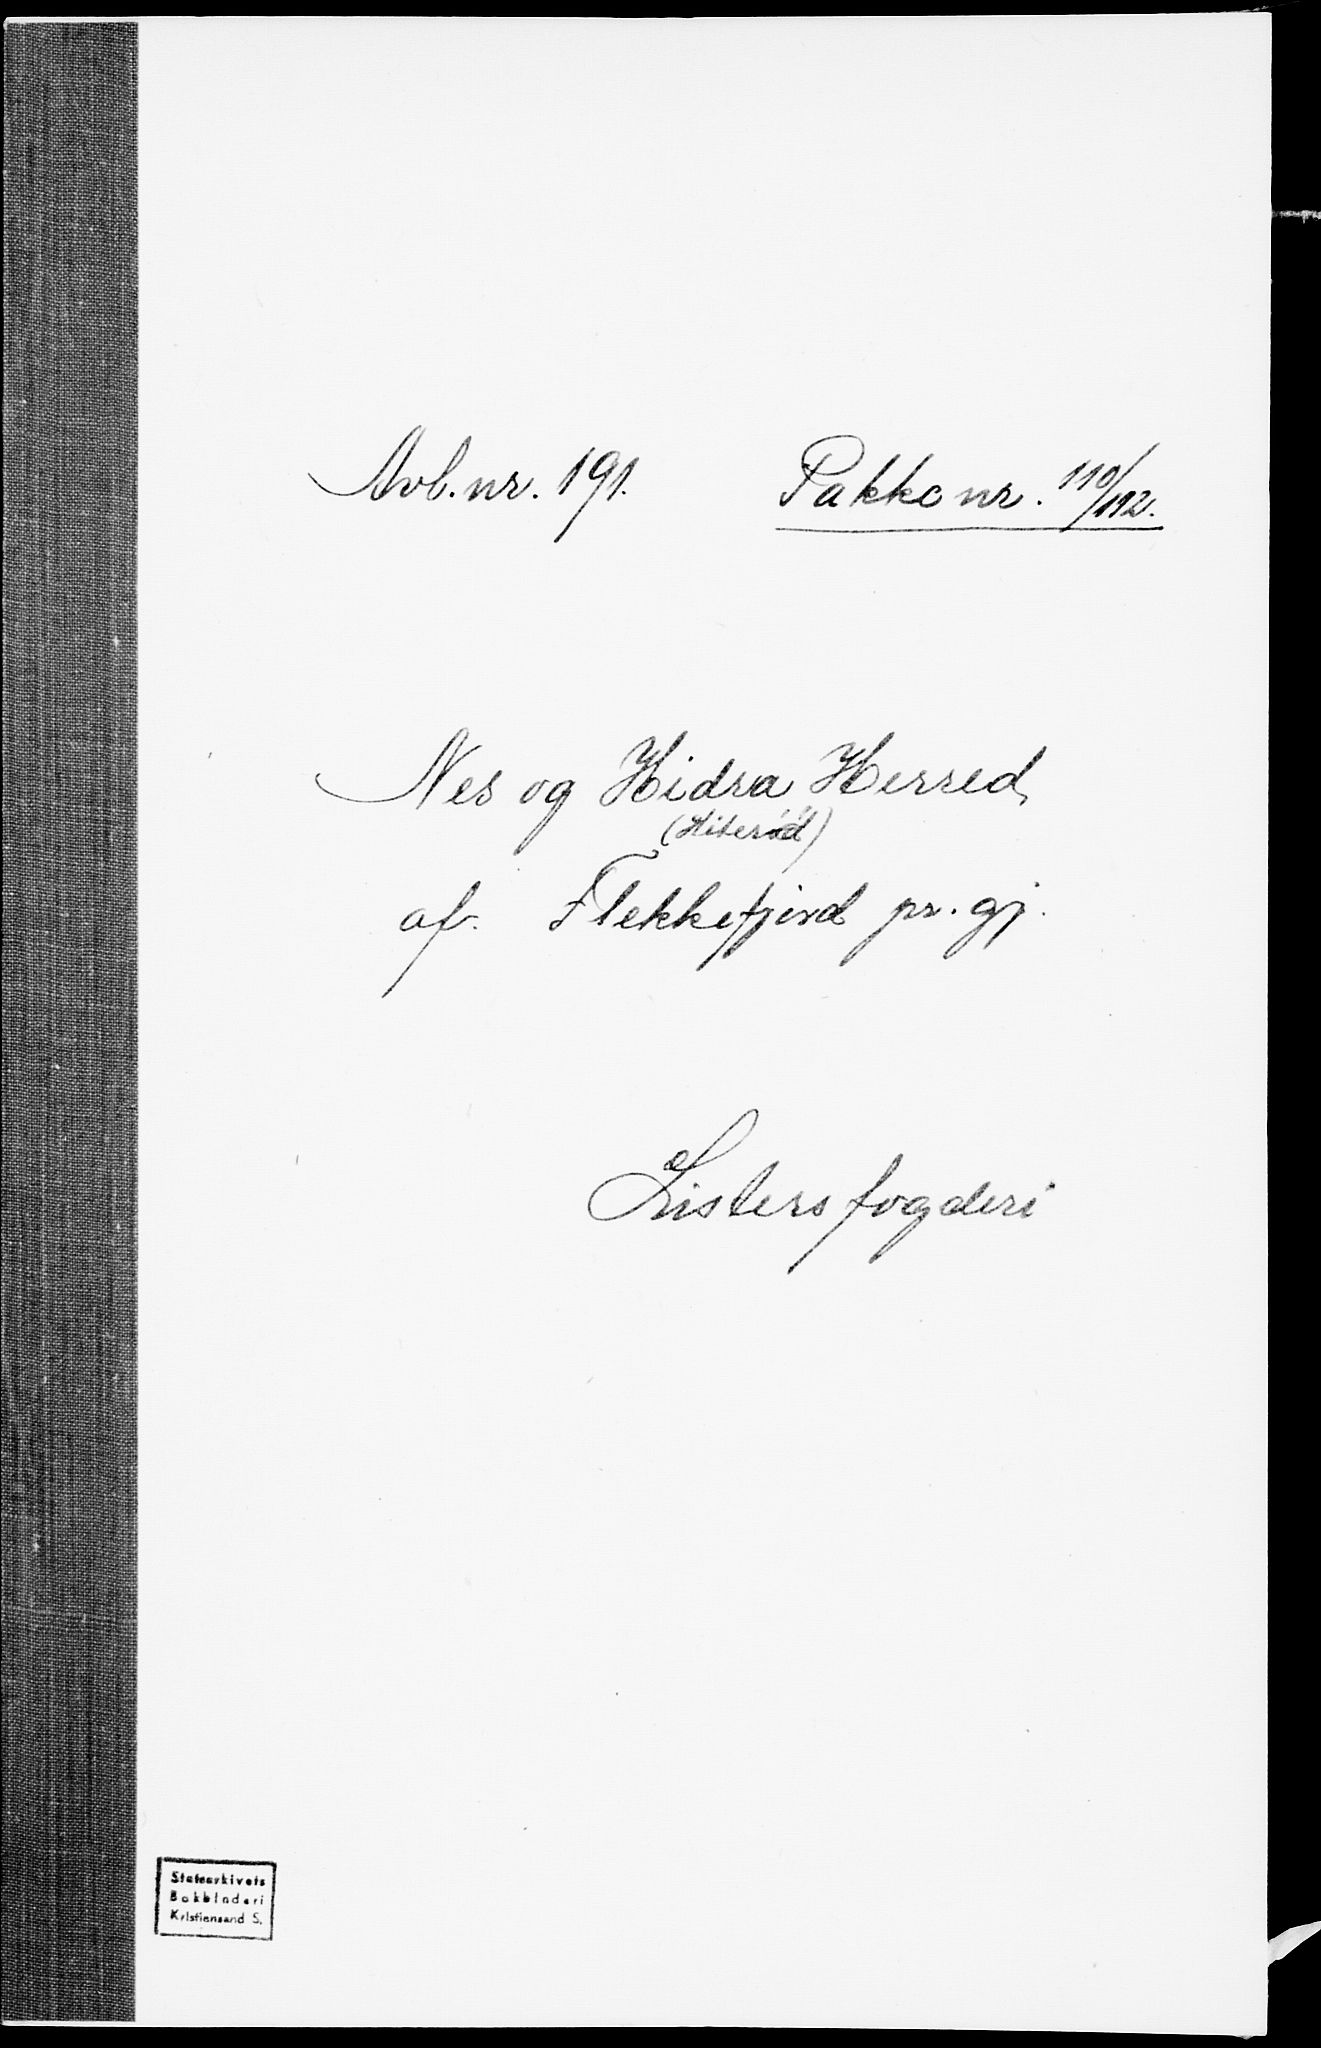 Avl. nr. 191. Pakke nr. 110/192.
Nes og Hidra Herred,
(Hiterö)
af. Flekkefjord pr. gj.
Listers fogderi
Statsarkivets
Bokbinderi
Kristiansand S.